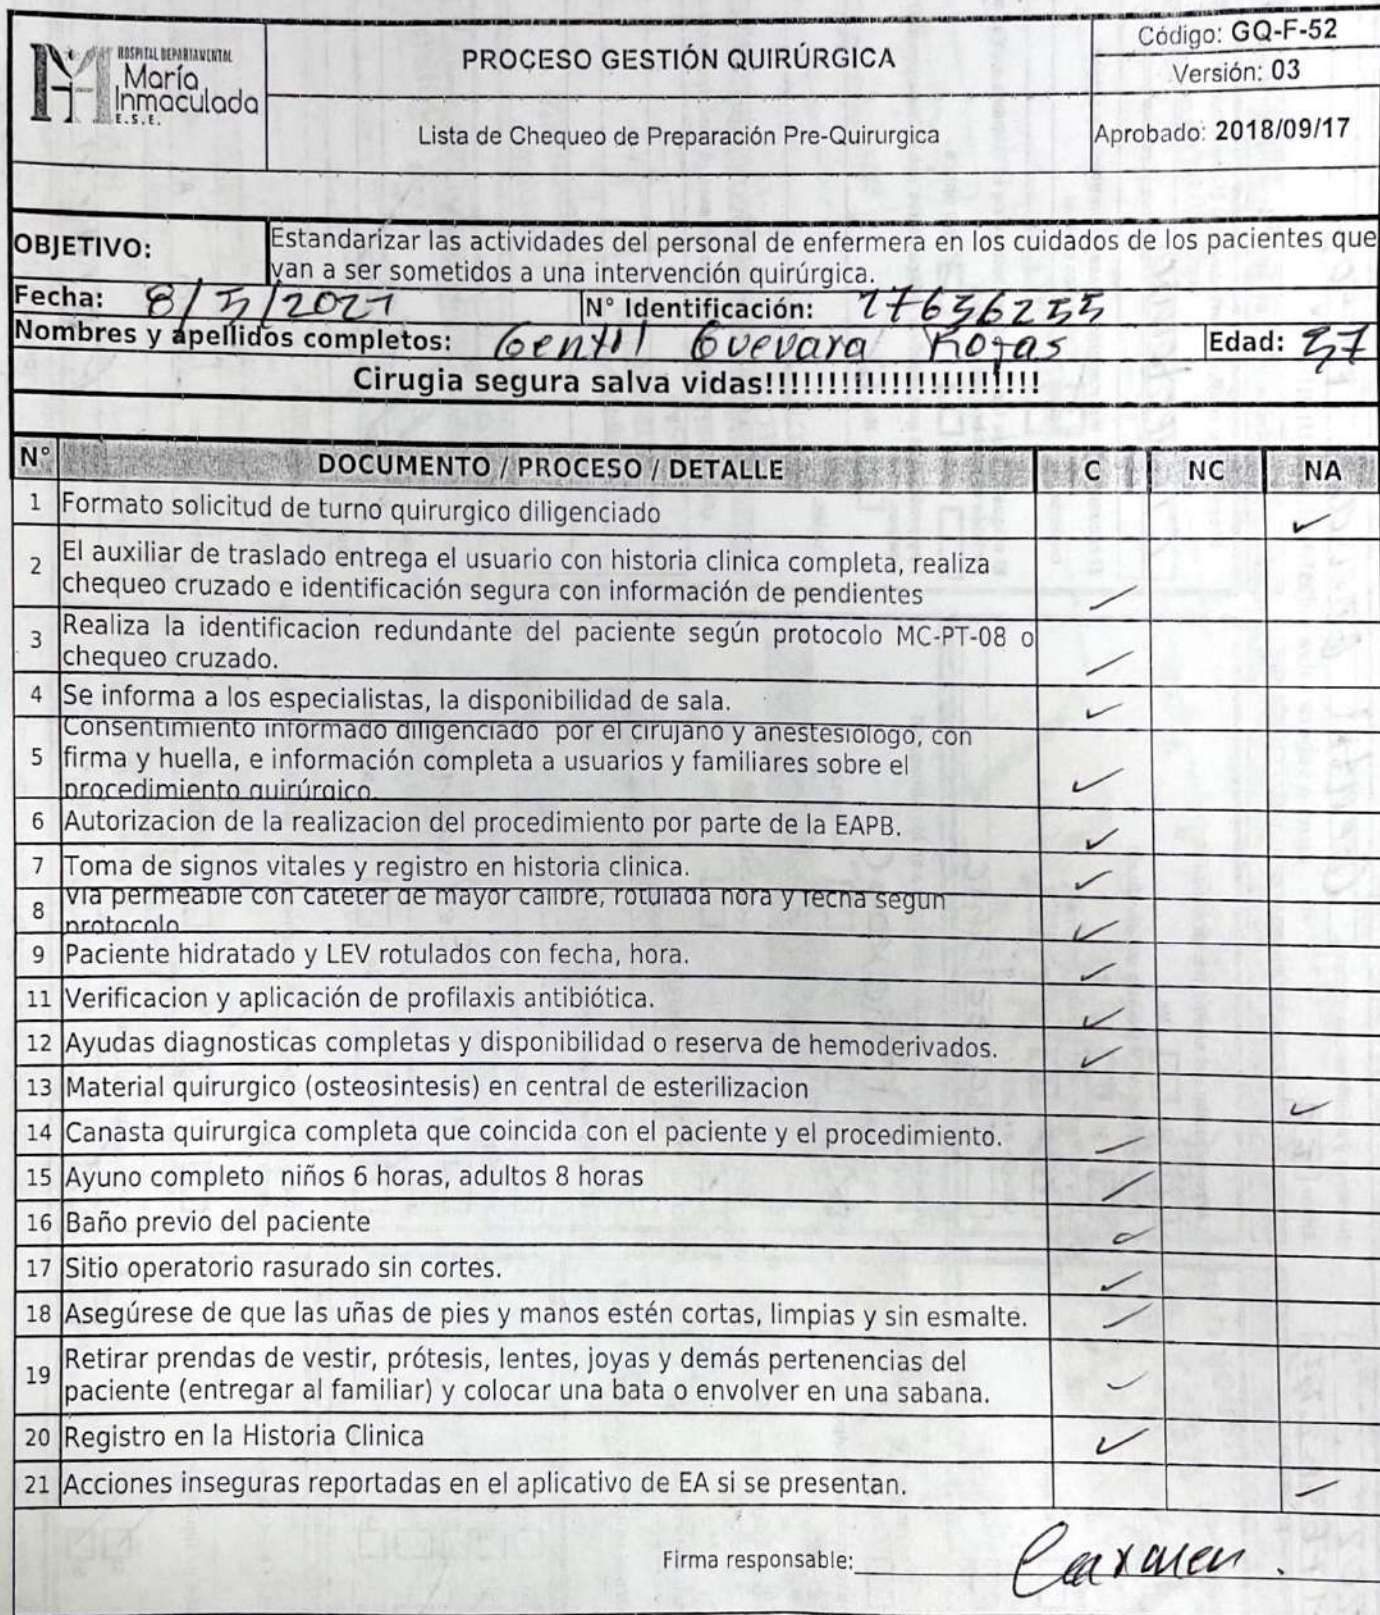 HOSPITAL DEPARTAMENTAL
María
Inmaculada
E.S.E.
PROCESO GESTIÓN QUIRÚRGICA
Lista de Chequeo de Preparación Pre-Quirurgica
Código: GQ-F-52
Versión: 03
Aprobado: 2018/09/17
OBJETIVO: Estandarizar las actividades del personal de enfermera en los cuidados de los pacientes que
van a ser sometidos a una intervención quirúrgica.
Fecha: 8/5/2021 N° identificación: 17636255
Nombres y apellidos completos: Gentil Guevara Rojas Edad: 57
Cirugia segura salva vidas!!!!!!!!!!!!!!!!!!!!!!
N° DOCUMENTO / PROCESO / DETALLE C NC NA
1 Formato solicitud de turno quirurgico diligenciado ✓
2 El auxiliar de traslado entrega el usuario con historia clinica completa, realiza
chequeo cruzado e identificación segura con información de pendientes ✓
3 Realiza la identificacion redundante del paciente según protocolo MC-PT-08 o
chequeo cruzado. ✓
4 Se informa a los especialistas, la disponibilidad de sala. ✓
5 Consentimiento informado diligenciado por el cirujano y anestesiologo, con
firma y huella, e información completa a usuarios y familiares sobre el
procedimiento quirúrgico. ✓
6 Autorizacion de la realizacion del procedimiento por parte de la EAPB. ✓
7 Toma de signos vitales y registro en historia clinica. ✓
8 Via permeable con cateter de mayor calibre, rotulada hora y fecha segun
protocolo ✓
9 Paciente hidratado y LEV rotulados con fecha, hora. ✓
11 Verificacion y aplicación de profilaxis antibiótica. ✓
12 Ayudas diagnosticas completas y disponibilidad o reserva de hemoderivados. ✓
13 Material quirurgico (osteosintesis) en central de esterilizacion ✓
14 Canasta quirurgica completa que coincida con el paciente y el procedimiento. ✓
15 Ayuno completo niños 6 horas, adultos 8 horas ✓
16 Baño previo del paciente ✓
17 Sitio operatorio rasurado sin cortes. ✓
18 Asegúrese de que las uñas de pies y manos estén cortas, limpias y sin esmalte. ✓
19 Retirar prendas de vestir, prótesis, lentes, joyas y demás pertenencias del
paciente (entregar al familiar) y colocar una bata o envolver en una sabana. ✓
20 Registro en la Historia Clinica ✓
21 Acciones inseguras reportadas en el aplicativo de EA si se presentan. ✓
Firma responsable: Carmen.